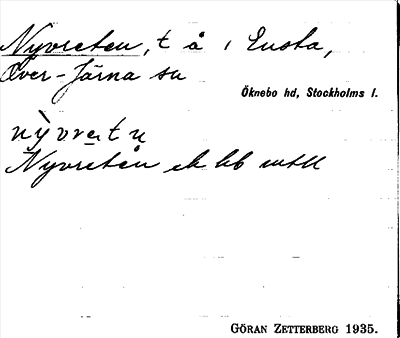 Nyvreten, t å i Ensta,
Över-Järna sn
Öknebo hd, Stockholms l.
nỳvretn
Nyvretén ek bb
GÖRAN ZETTERBERG 1935.